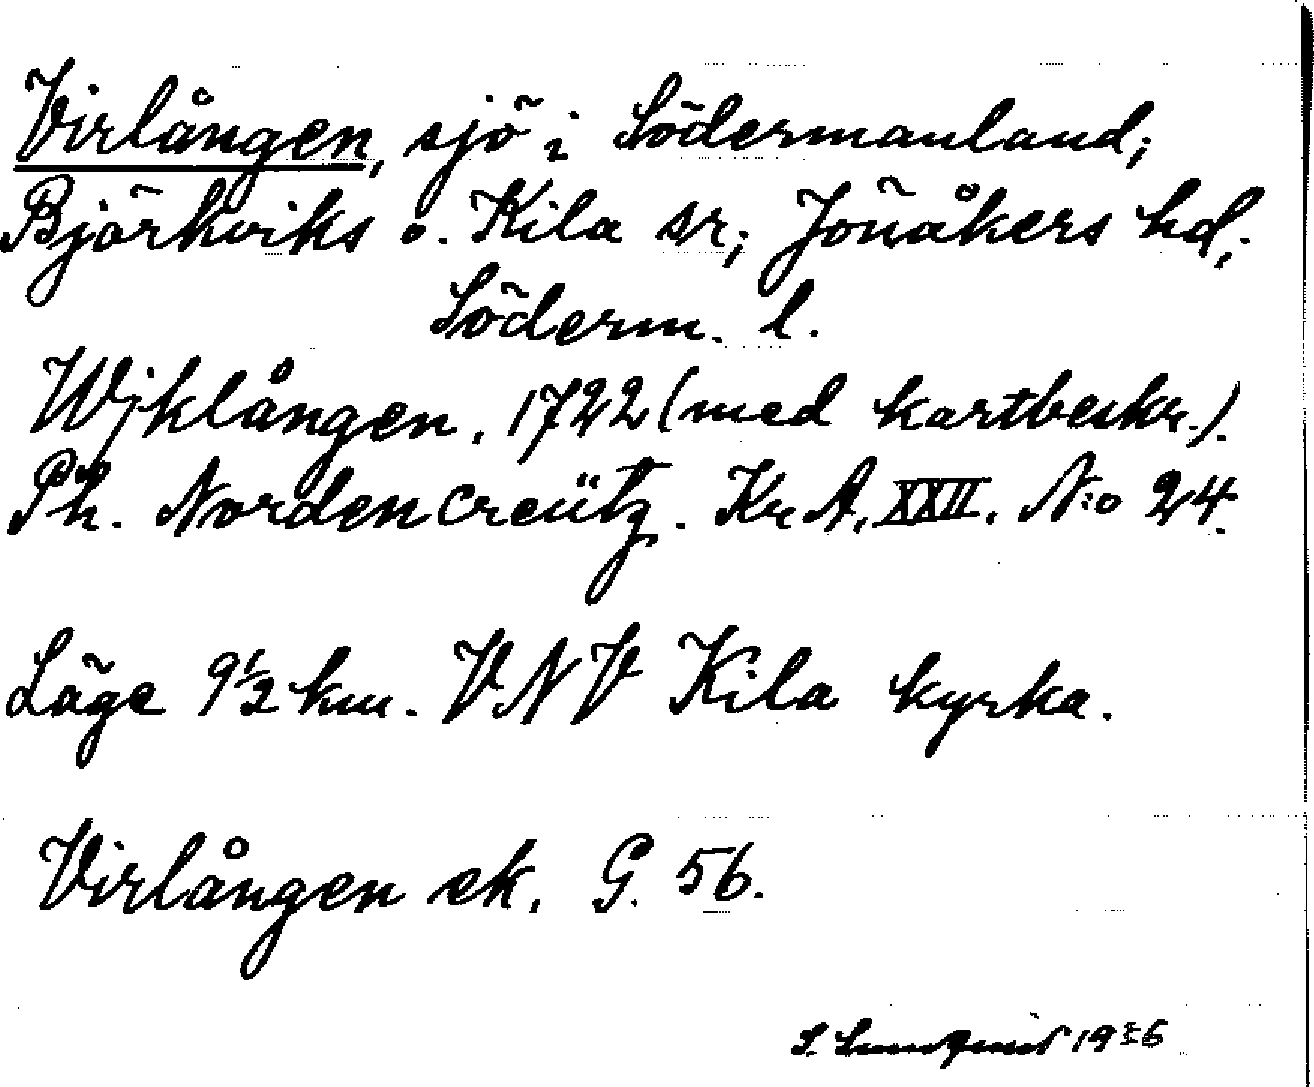 Virlången, sjö i Södermanland;
Björkviks o. Kila sr; Jönåkers hd;
Söderm. l.
Wjklången, 1722 (med kartbeskr.).
Ph. Nordencreütz. Kr. A, XXII. N:o 24.
Läge 9 1/2 km. VNV Kila kyrka.
Virlången ek. G. 56.
S. Lundquist 19